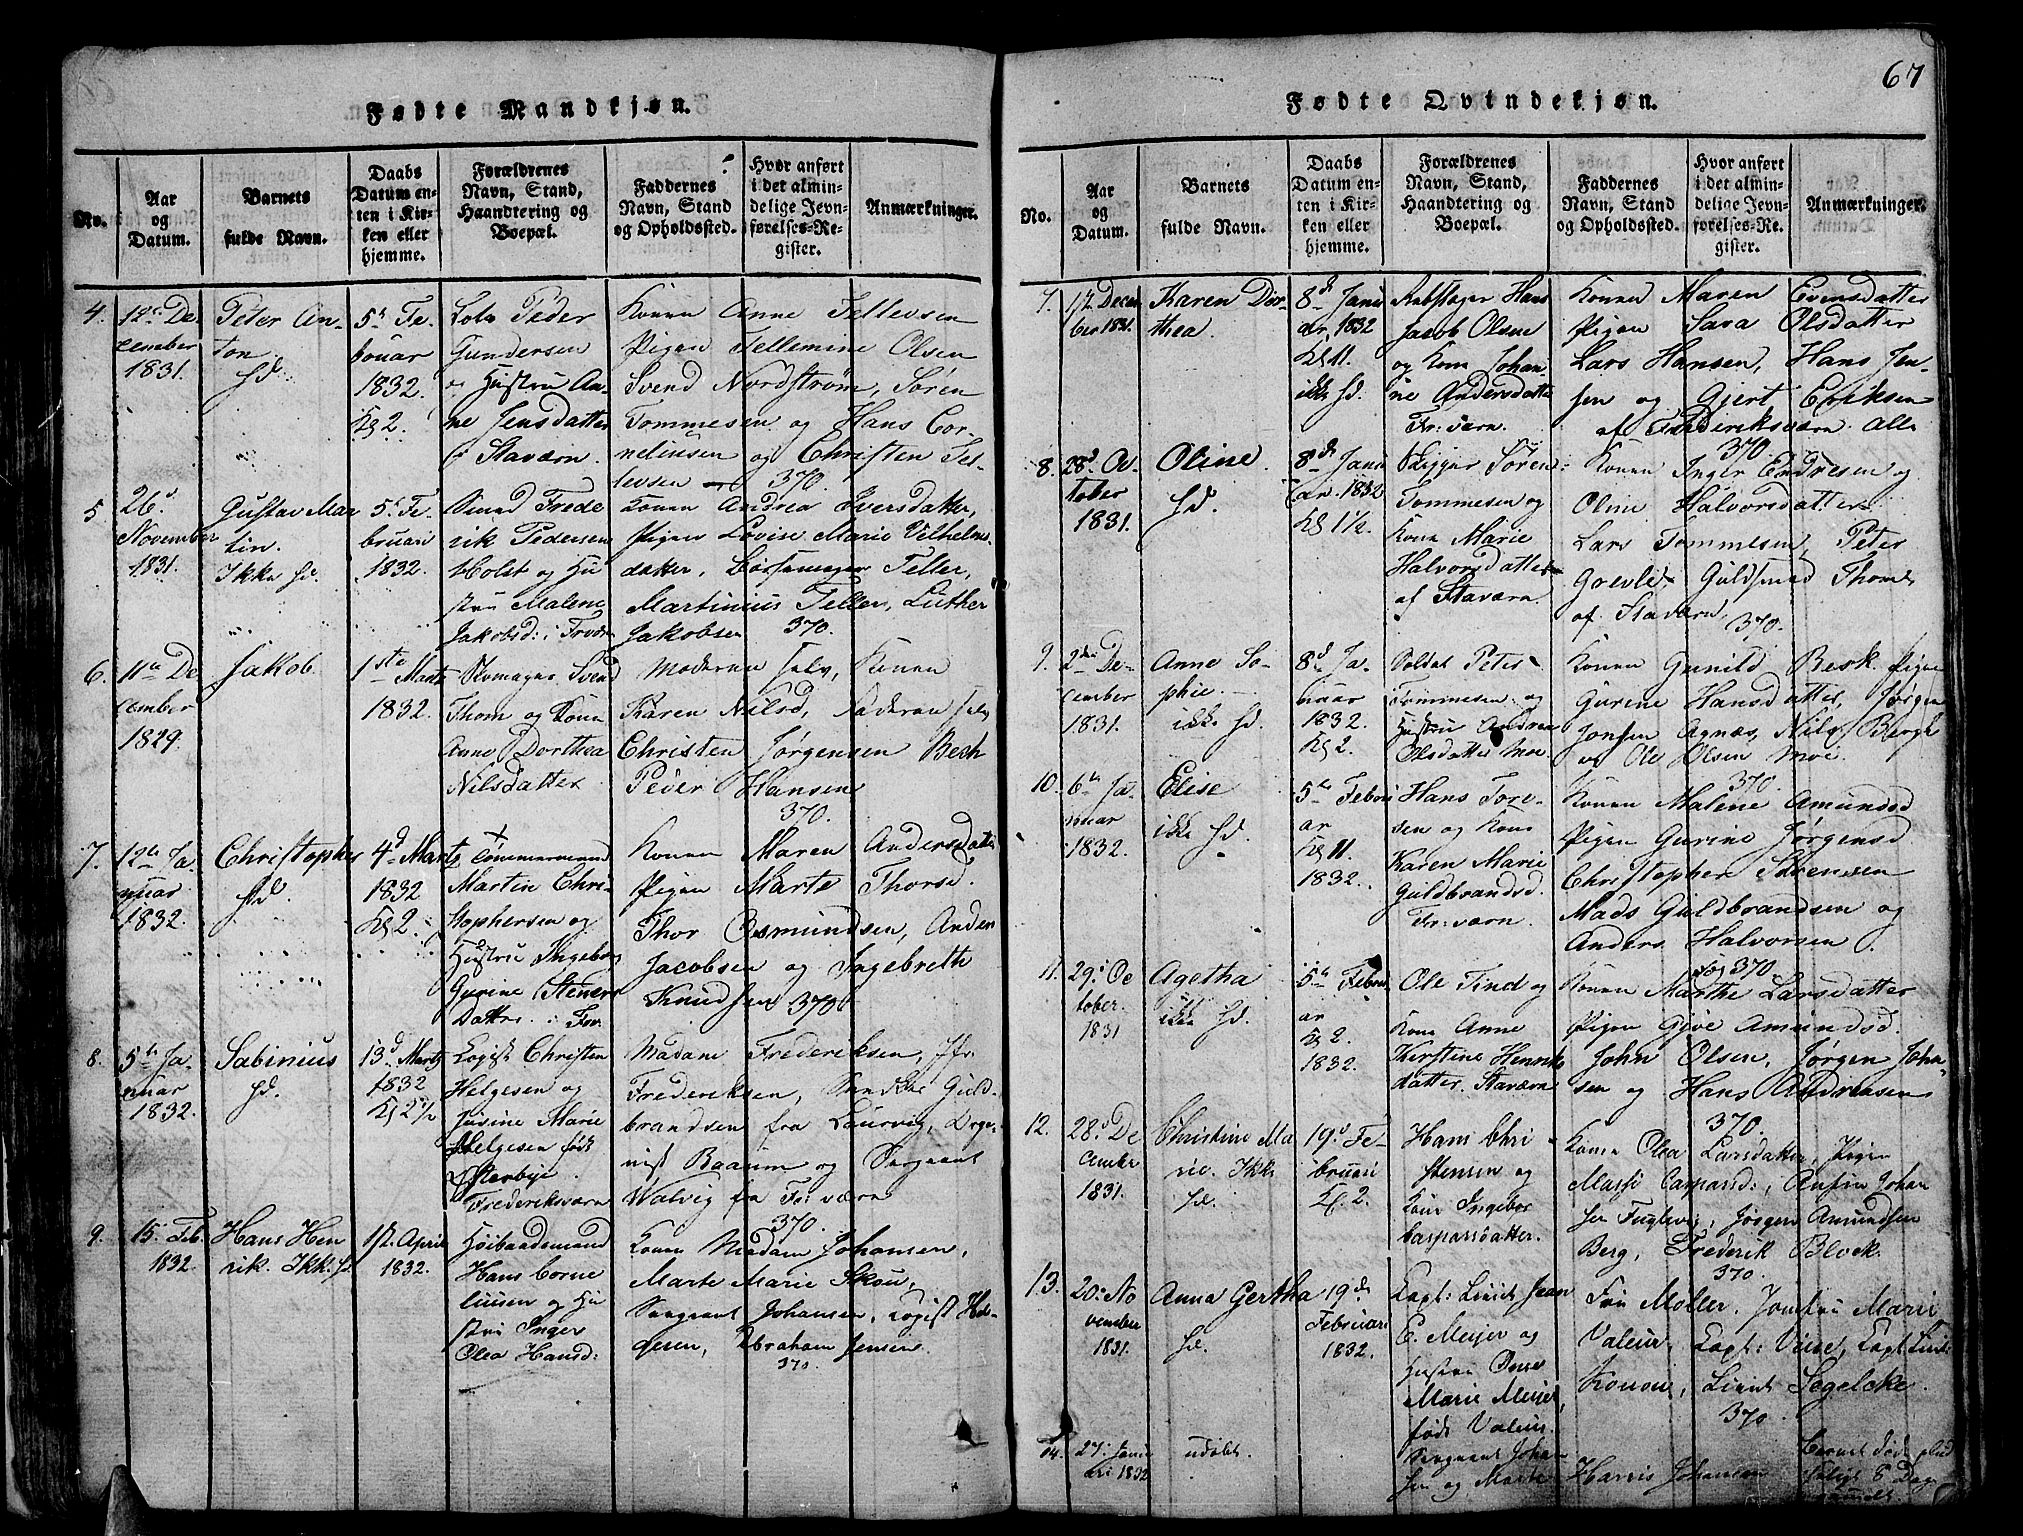 67
Fødte Mandkjøn.
No.
Aar
og
Datum.
Barnets
fulde Navn.
Daabs
Datum en-
ten i Kir-
ken eller
hjemme.
Forældrenes
Navn, Stand,
Haandtering og
Boepæl.
Faddernes
Navn, Stand
og Opholdssted.
Hvor anført
i det almin-
delige Jevn-
førelses-Re-
gister.
Anmærkninger.
4.
12te De-
cember
1831.
Peter An-
ton.
hd.
5te Fe-
bruar
1832.
Kl 2.
Lots Peder
Gundersen
og Hustru An-
ne Jensdatter
Staværn.
Konen Anne Tellevsen
Pigen Tellemine Olsen
Svend Nordstrøm, Sören
Tommesen og Hans Cor-
neliusen og Christen Tel-
levsen
370.
5
26d
November
1831.
Gustav Mar
tin.
Ikke hd.
5te Fe-
bruari
1832.
Smed Frede
rik Pedersen
Holst og Hu
stru Malene
Jakobsd:
Konen Andrea Iversdatter,
Pigen Lovise Marie Vilhelms-
datter, Teller,
Martinius Teller, Luther
Jakobsen 370.
6.
11te De
cember
1829.
Jakob.
1ste Marts
1832.
Skomager Svend
Thom og Kone
Anne Dorthea
Nilsdatter
Moderen selv, Konen
Karen Nilsd, Faderen selv
Christen Jørgensen Besk
Peder Hansen
370.
7.
12te Ja
nuar
1832.
Christopher
hd.
4d Marts
1832
Kl 2.
Tømmermand
Martin Chri-
stophersen og
Hustru Ingeborg
Gurine Steners
Dattr.
Konen Maren Andersdatter
Pigen Marte Thorsd.
Thor Osmundsen, Anders
Jacobsen og Ingebreth
Knudsen 370.
8.
5te Ja
nuar
1832.
Sabinius
hd.
13d Marts
1832
Kl 2 1/2
Logist Christen
Helgesen og
Marie
Helgesen født
Frederiksværn
Madam Frederiksen, Jfr
Frederiksen, Guld-
brandsen fra Laurvig, Orga-
nist Baaum og Sergeant
Walvig fra Fr: værn
370.
9.
15. Feb.
1832.
Hans Hen
rik. Ikke hd.
1/2. April
1832.
Hans Corne
liusen og Hu
stru Inger
Olea Hansd:
Konen Madam Johansen,
Marte Marie Skou,
Sergeant Johansen, Logist Hel-
gesen, Abraham Jensen
370.
Fødte Qvindekjøn.
No.
Aar
og
Datum.
Barnets
fulde Navn.
Daabs
Datum en-
ten i Kir-
ken eller
hjemme.
Forældrenes
Navn, Stand,
Haandtering og
Boepæl.
Faddernes
Navn, Stand
og Opholdssted.
Hvor anført
i det almin-
delige Jevn-
førelses-Re-
gister.
Anmærkninger.
7.
1/2 Decem
ber 1831.
Karen Dor-
thea.
8d Janu
ar 1832
Kl 11.
ikke hd.
Rebslager Hans
Jacob Olsen
og Kone Johan-
ne Andersdatter
Fr: værn.
Konen Maren Evensdatter
Pigen Sara Olsdatter
Lars Hansen, Hans Jen-
sen og Gjert Eriksen
af Frederiksværn. Alle
370
8.
28d Oc-
tober
1831.
Oline.
hd.
8d Janu
ar. 1832
Kl 1 1/2.
Ligger Sören
Tommesen og
Kone Marie
Halvorsdatter
af Staværn.
Konen Inger Endresen og
Oline Halvorsdatter
Lars Tommesen, Peter
Grevle Guldsmed Thoms
af Staværn
370.
9.
2den De-
cember
1831.
Anne So-
phie.
ikke hd.
8d Ja-
nuar
1832.
Kl 2.
Soldat Peter
Tommesen og
Hustru Andrea
Olsdatter Moe
Konen Gunild Besk, Pigen
Gurine Hansdatter, Jørgen
Jonsen Agnæs, Nils Bergh
og Ole Olsen Moe.
370
10.
6te Ja-
nuar
1832.
Elise
ikke hd.
5te Febru
ar
Kl 11.
1832.
Hans Tore-
sen og Kone
Karen Marie
Guldbrandsd.
Fr: værn.
Konen Malene Amundsd
Pigen Gurine Jörgensd.
Christopher Sørensen
Mads Guldbrandsen og
Anders Halvorsen.
370
11.
29d Oc
tober
1831
Agetha
ikke hd.
5te Febru
ar
Kl 2.
1832.
Ole Find og
Kone Anne
Kirstine Henriks
datter. Staværn
Konen Marthe Larsdatter
Pigen Gjøe Amundsd.
John Olsen, Jørgen John-
sen og Hans Andreasen
370.
12.
28d De
cember
1831.
Christine Ma
rie. Ikke
hd.
19d Fe-
bruari
Kl. 2.
Hans Chri
stensen og
Kone Ingebor
Caspersdatter.
Kone Olea Larsdatter, Pigen
Massi Caspersd:, Johan
sen Fuglevig, Jørgen Amundsen
Berg, Frederik Block.
370.
13.
20. No
vember
1831.
Anna Gertha
hd.
19de
Februari
1832.
Capt: Lieut
E. Meijer og
Hustru
Marie Meijer,
født Valeur.
Fru Møller. Jomfru Marie
Valeur, Capt: , Capt Lieut:
, Lieut Segelcke.
370.
14.
27. Janu
ari 1832
udøbt.
Sergeant Johan
sen og Marte
Harris Johansen
Barnet
8 Dage